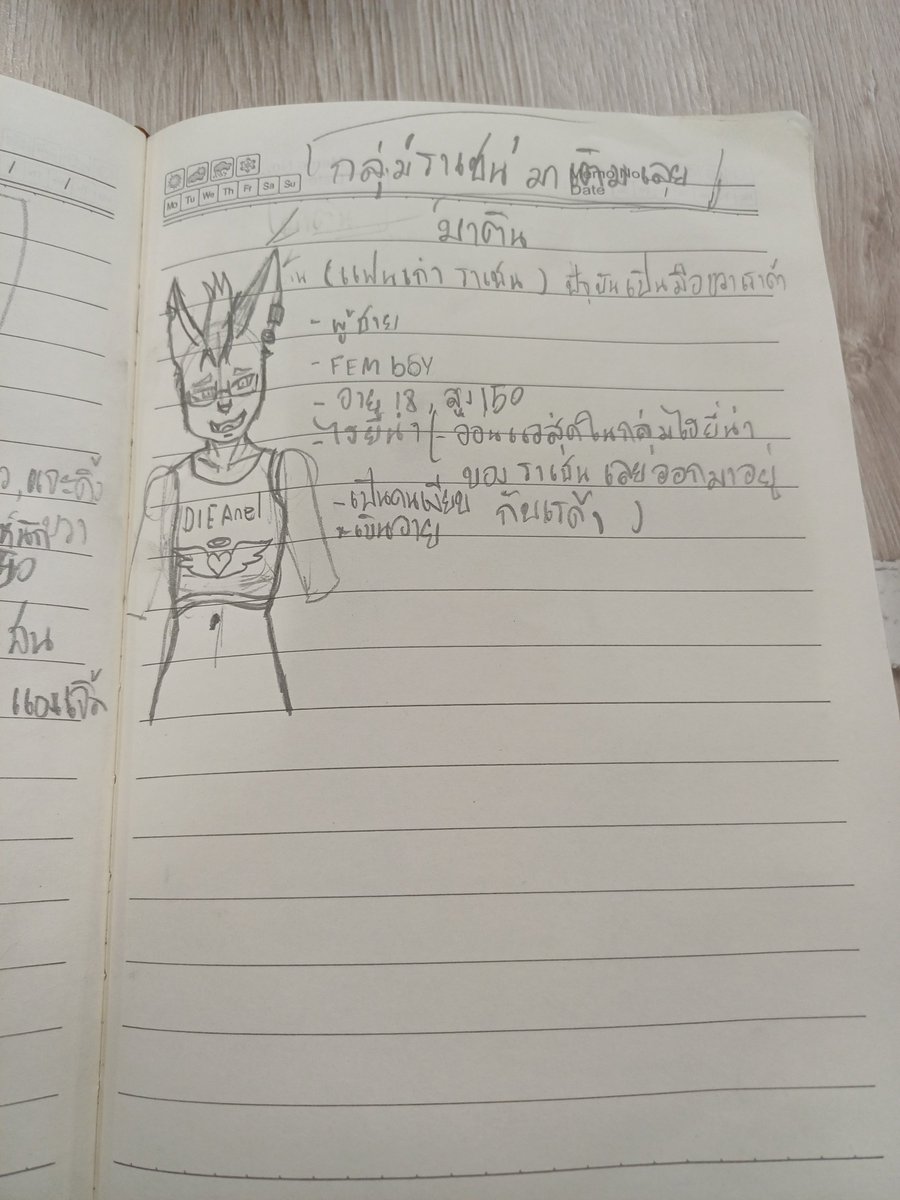 กลุ่มราเชน มาเติมเลย
Memo No.
Date
Mo Tu We Th Fr Sa Su
มาติน
(แฟนเก่า ราเชน) ปัจุบันเป็นมือขวาเรดำ
- ผู้ชาย
- FEM bOY
- อายุ 18 สูง 150
- ไฮยีน่า (- ออนแอสุดในกลุ่มไฮยีน่า
ของ ราเชน เลยออกมาอยู่
- เป็นคนเงียบ
- เขินอาย
DIE Anel
แจะดิ้ง
แอนเจิ้ล